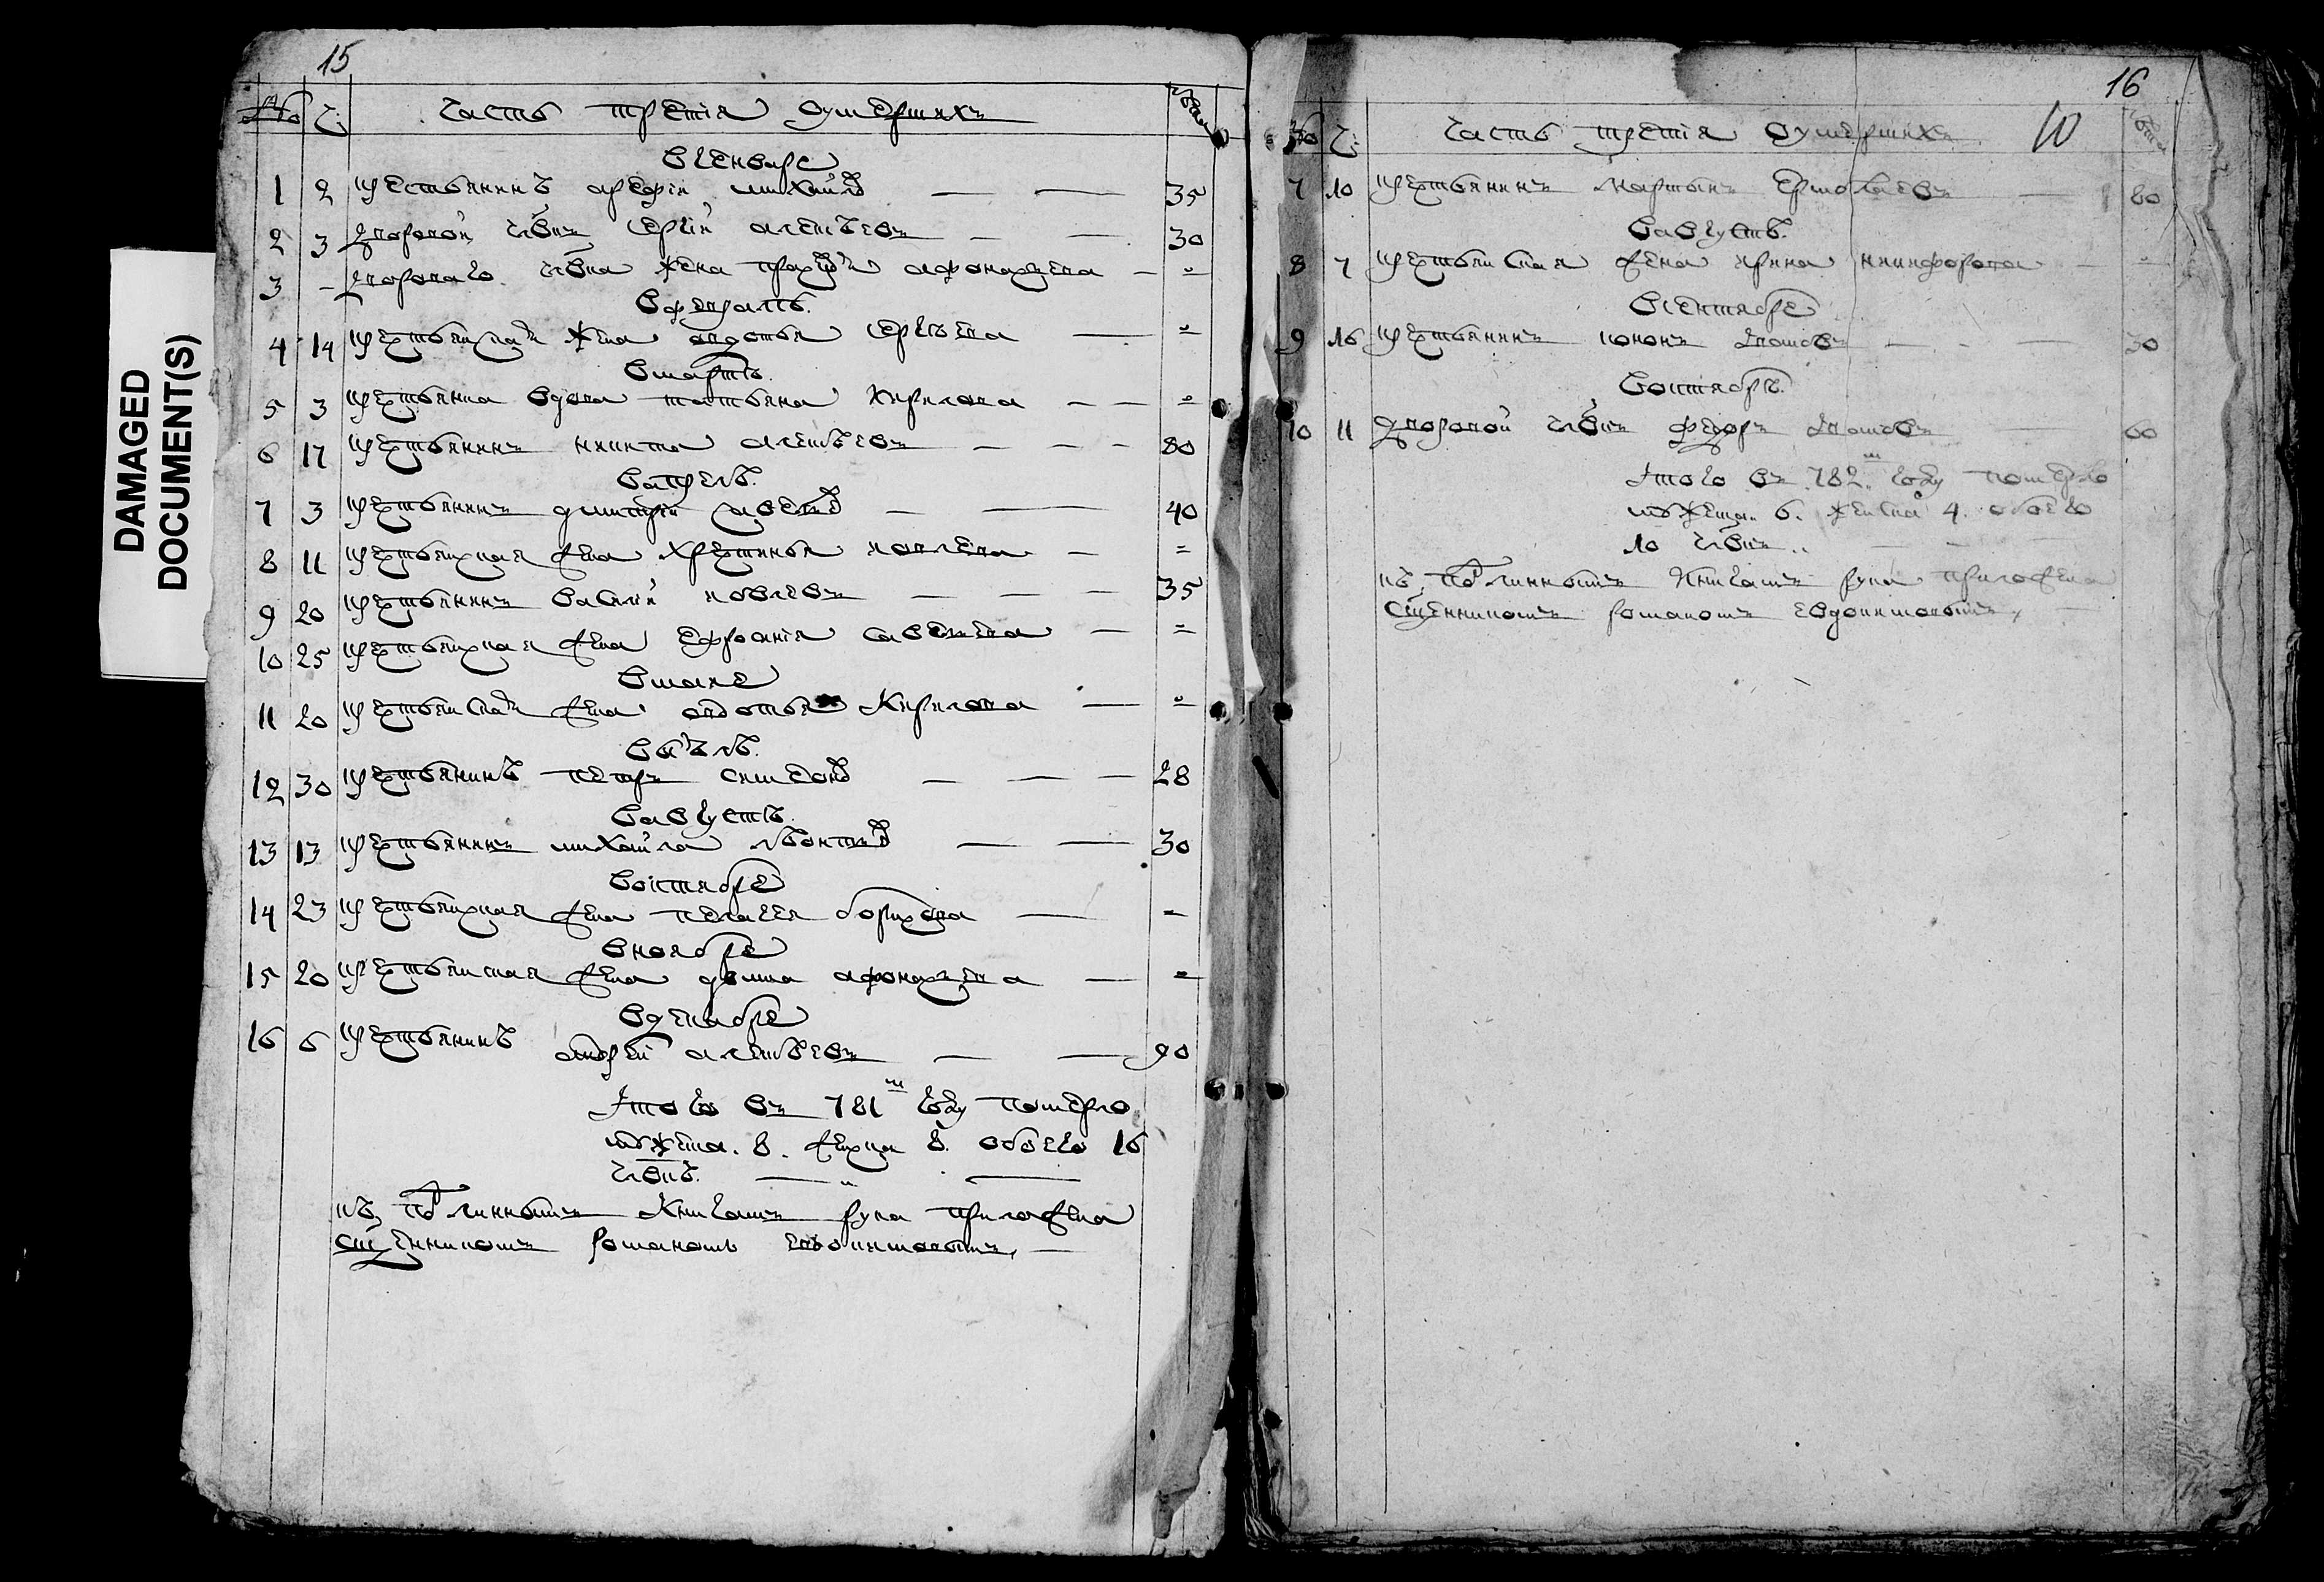 DAMAGED
DOCUMENT(S)
15
№ Ч: Часть третіа оумершихъ лѣта
вгенваре
1 2 крестьянинъ арефіи михаилов 35
2 3 дворовои члвкъ сергіи алексѣевъ 30
3 двороваго члвка жена афонасьева
вфевралѣ
4 14 крестьянская жена авдотья сергѣева
вмартѣ
5 3 крестьянка вдова татьяна кирилова
6 17 крестьянинъ никита алексѣевъ 80
вапрелѣ
7 3 крестьянинъ димитріи савелев 40
8 11 крестьянская жена хрестинья яковлева
9 20 крестьянинъ василіи яковлевъ 35
10 25 крестьянская жена ефросинія савельева
вмаие
11 20 крестьянская жена авдотья кирилова
виюлѣ
12 30 крестьянинъ петръ симеонов 28
вавгустѣ
13 13 крестьянинъ михаила лѣонтиев 30
воктябре
14 23 крестьянская жена пелагея борисова
вноябре
15 20 крестьянская жена домна афонасьева
вдекабре
16 6 крестьянинъ андреи алексѣевъ 90
Итого въ 781м году померло
мужеска. 8. женска 8. обоего 16
члвкъ.
къ подлиннымъ книгамъ рука приложена
сщенникомъ романомъ евдокимовымъ
16
10
№ Ч: Часть третіа оумершихъ лѣта
7 10 крестьянинъ мартынъ ермолаевъ 80
вавгустѣ
8 7 крестьянская жена ирина никифорова
всентябре
9 16 крестьянинъ кононъ 30
воктябрѣ
10 11 дворовои члвкъ федоръ 60
Итого въ 782м году померло
мужеска. 6. женска 4. обоего
10 члвкъ
къ подлиннымъ книгамъ рука приложена
сщенникомъ романомъ евдокимовымъ